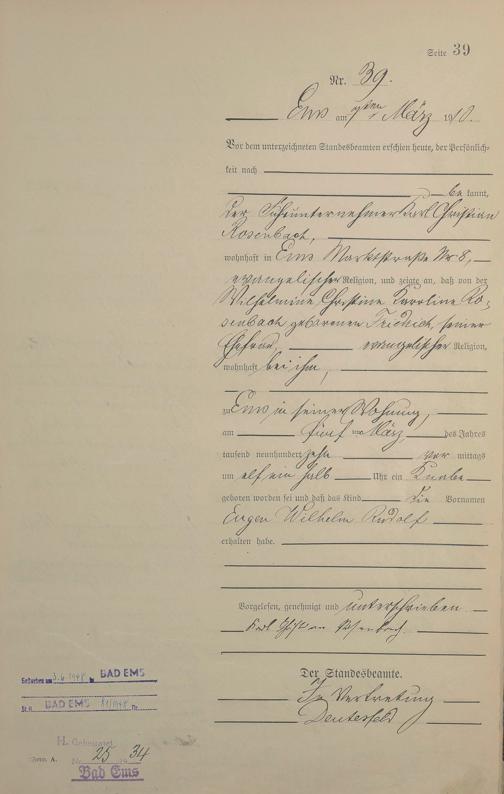 Seite 39
Nr. 39.
Ems am 7ten März 1910.
Vor dem unterzeichneten Standesbeamten erschien heute, der Persönlich-
keit nach
be kannt,
der Fuhrunternehmer Karl Christian
Rosenbach,
wohnhaft in Ems Marktstraße Nr 8,
evangelischer Religion, und zeigte an, daß von der
Wilhelmine Christine Karoline Ro-
senbach geborenen Friedrich, seiner
Ehefrau, evangelischer Religion,
wohnhaft bei ihm,
zu Ems in seiner Wohnung,
am fünf ten März des Jahres
tausend neunhundert zehn vor mittags
um elf ein halb Uhr ein Knabe
geboren worden sei und daß das Kind die Vornamen
Eugen Wilhelm Rudolf
erhalten habe.
Vorgelesen, genehmigt und unterschrieben
Karl Christian Rosenbach
Der Standesbeamte.
In Vertretung
Gestorben am 3.6.1948 in BAD EMS
St.A. BAD EMS Nr.
H. Geheiratet
Form. A. Nr. 25 34
Bad Ems